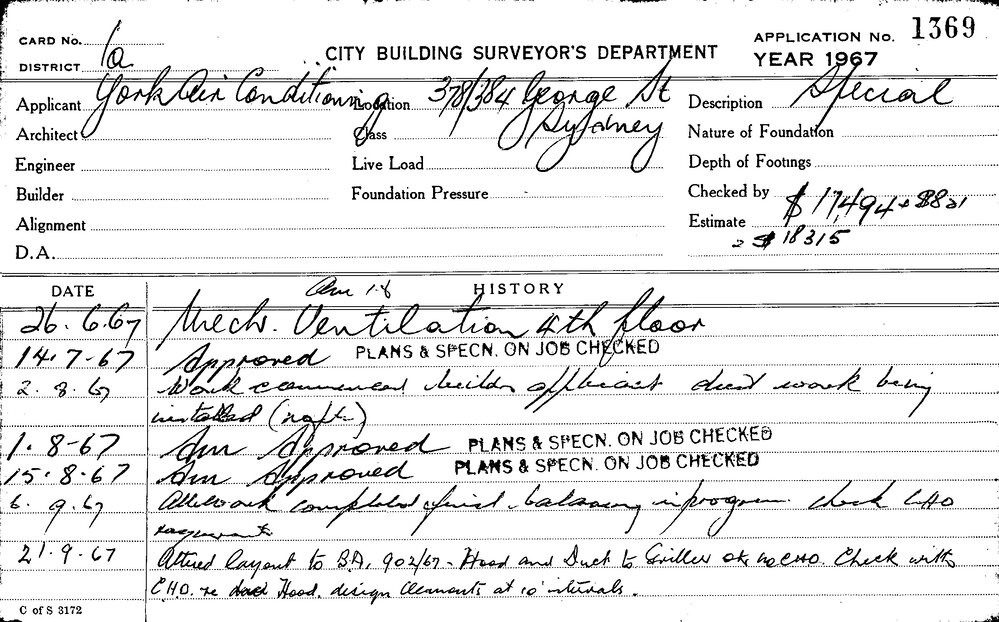 CARD No. 1a
CITY BUILDING SURVEYOR'S DEPARTMENT
APPLICATION No. 1369
DISTRICT
YEAR 1967
Applicant York Air Conditioning Location 378/384 George St Description Special
Architect Class Sydney Nature of Foundation
Engineer Live Load Depth of Footings
Builder Foundation Pressure Checked by
Alignment Estimate $17,494 + $821
D.A. $18315
DATE Am 1.8 HISTORY
26.6.67 Mech. Ventilation 4th floor
14.7-67 Approved PLANS & SPECN. ON JOB CHECKED
2.8.67 Work commenced builder applicant duct work being
installed
1.8-67 Am Approved PLANS & SPECN. ON JOB CHECKED
15.8.67 Am Approved PLANS & SPECN. ON JOB CHECKED
6.9.67 All work completed final balancing in progress check CHO
21.9.67 Altered layout to BA. 902/67 - Hood and Duct to Griller ok CHO. Check with
CHO. re Hood, design clements at 10' intervals.
C of S 3172